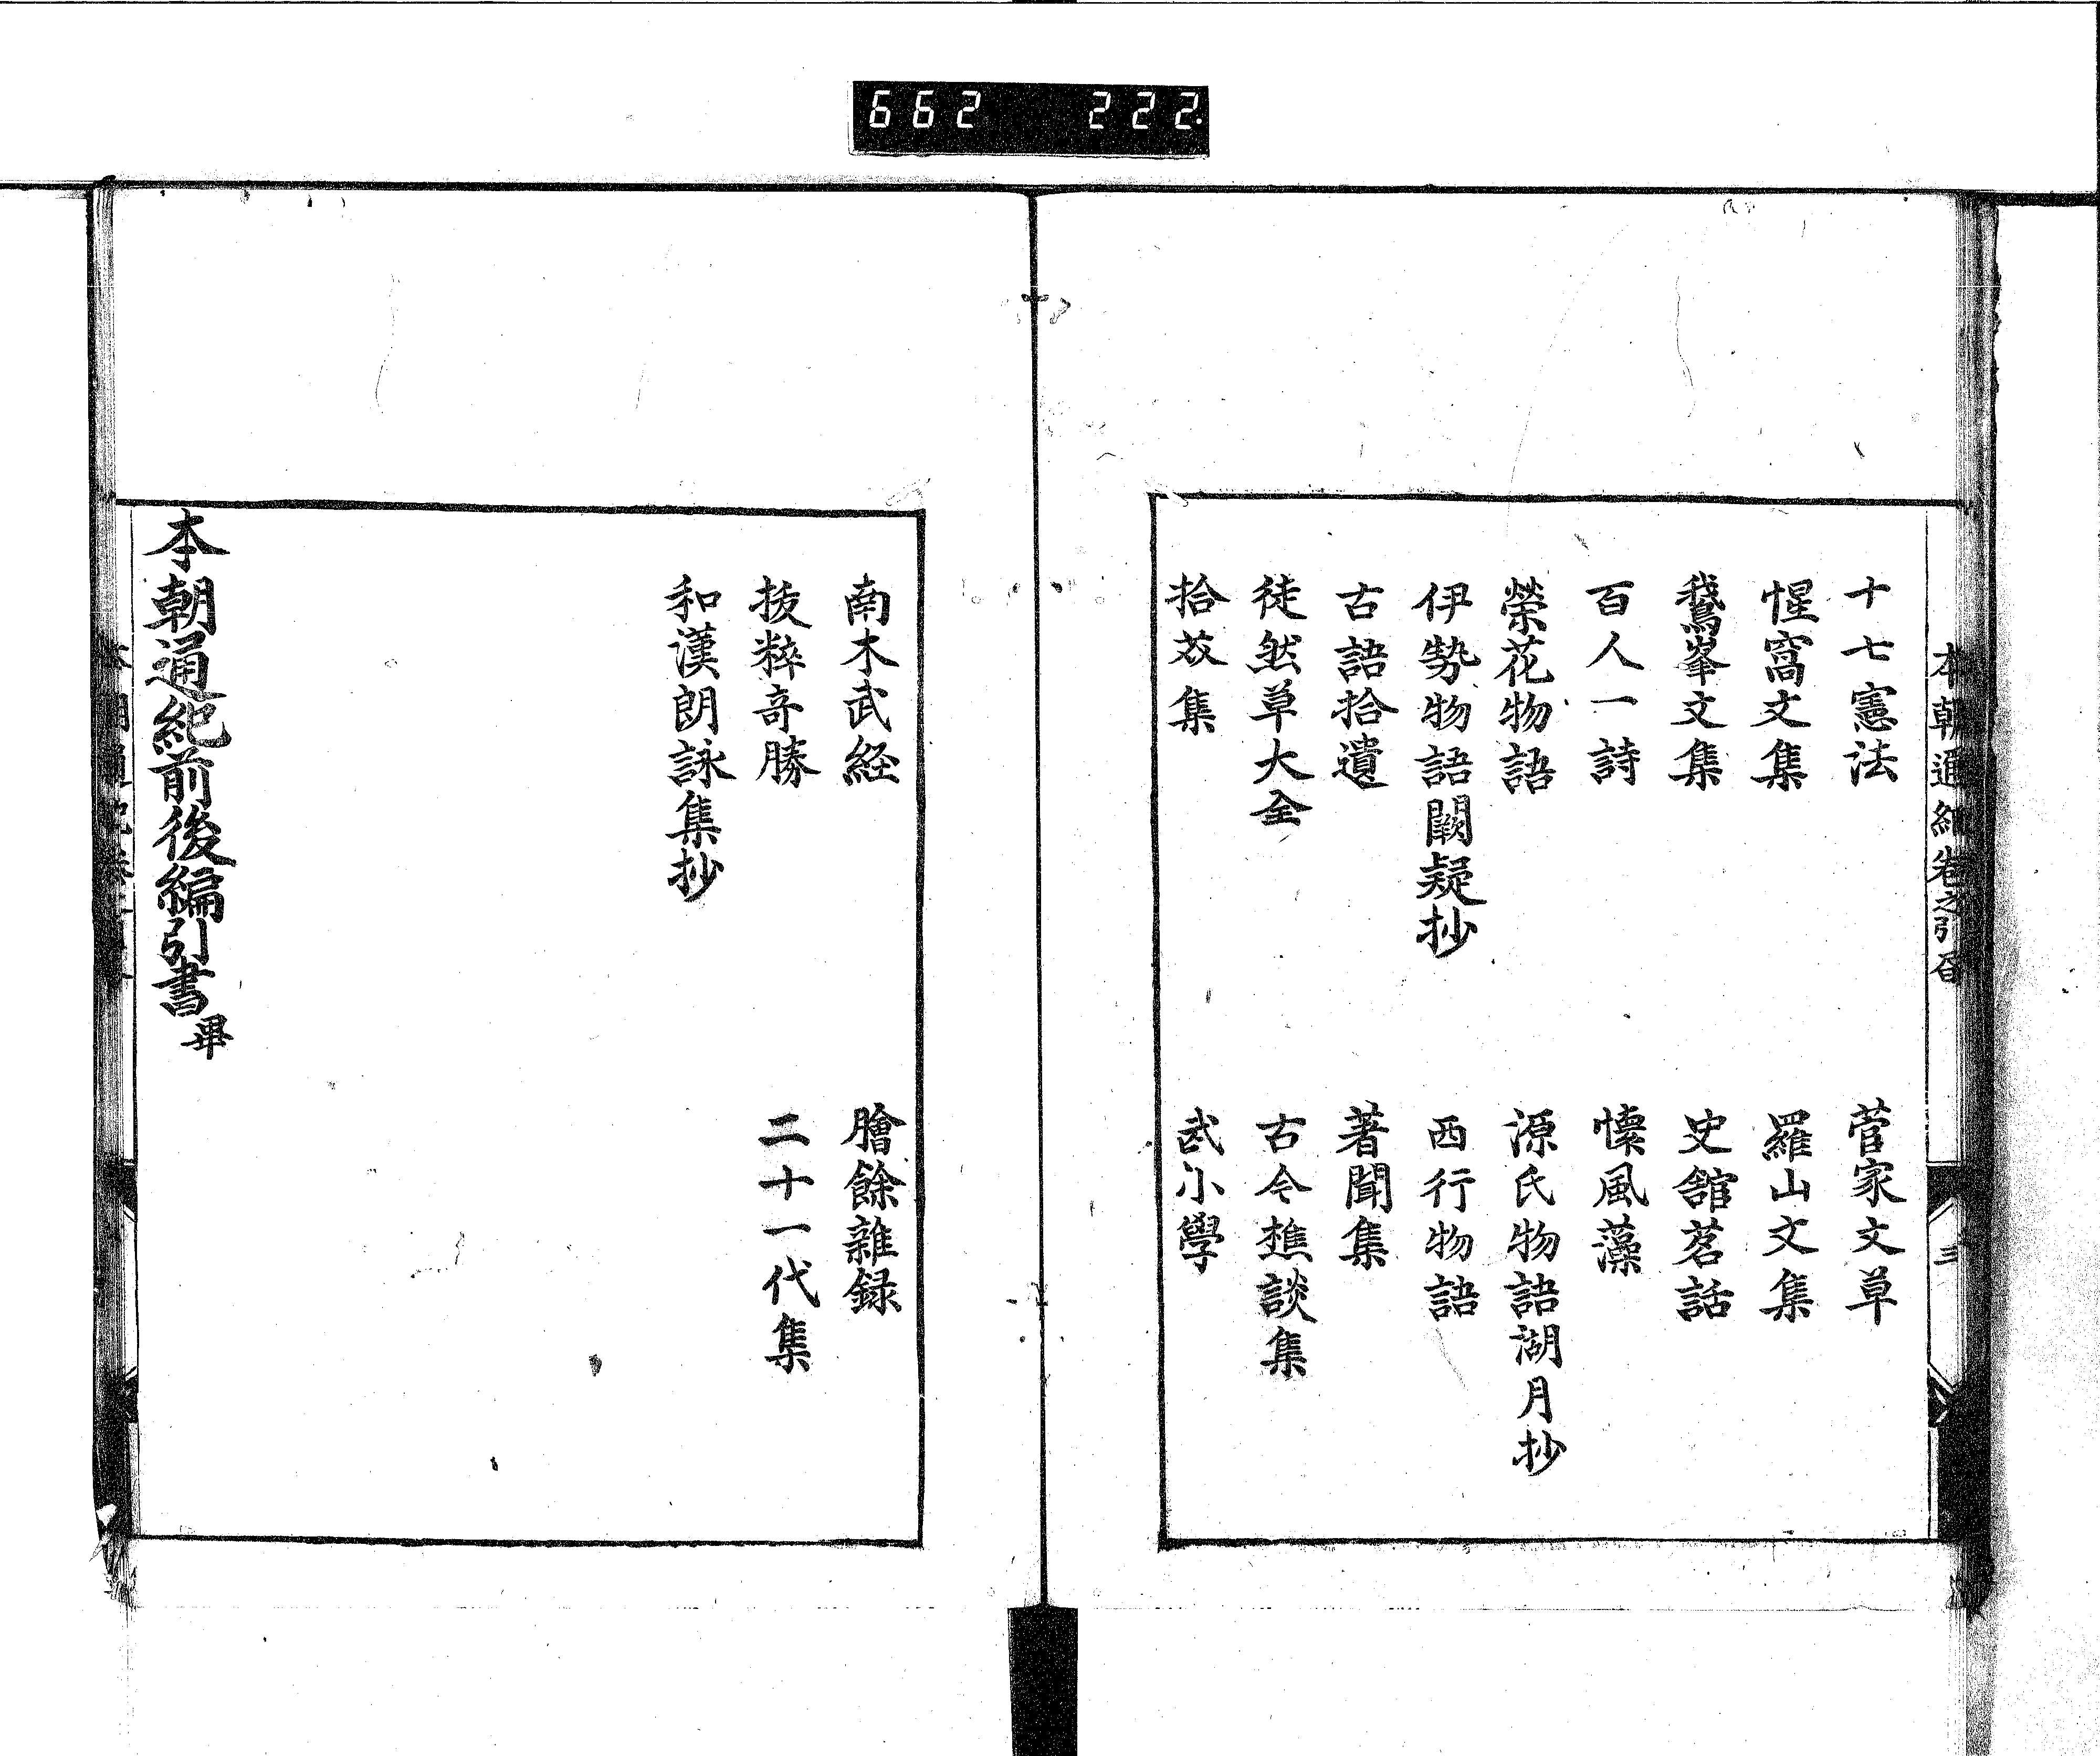 662 222
本朝通紀卷之引昏
三
十七憲法
菅家文草
惺窩文集
羅山文集
鵞峯文集
史館茗話
百人一詩
懷風藻
榮花物語
源氏物語湖月抄
伊勢物語闕疑抄
西行物語
古語拾遺
著聞集
徒然草大全
古今樵談集
拾芥集
武小學
南木武経
膾餘雜録
抜粹奇勝
二十一代集
和漢朗詠集抄
本朝通紀前後編引書畢